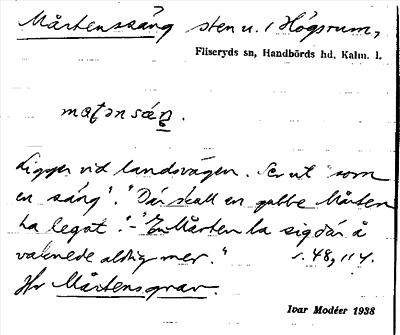 Mårtenssäng sten u. i Högsrum,
Fliseryds sn, Handbörds hd, Kalm. l.
Ligger vid landsvägen. Ser ut "som
en säng". "Där skall en gubbe Mårten
ha legat." - "En Mårten la sig där å
vaknede aldrig mer." s. 48, 114.
Jfr Mårtensgrav.
Ivar Modéer 1938